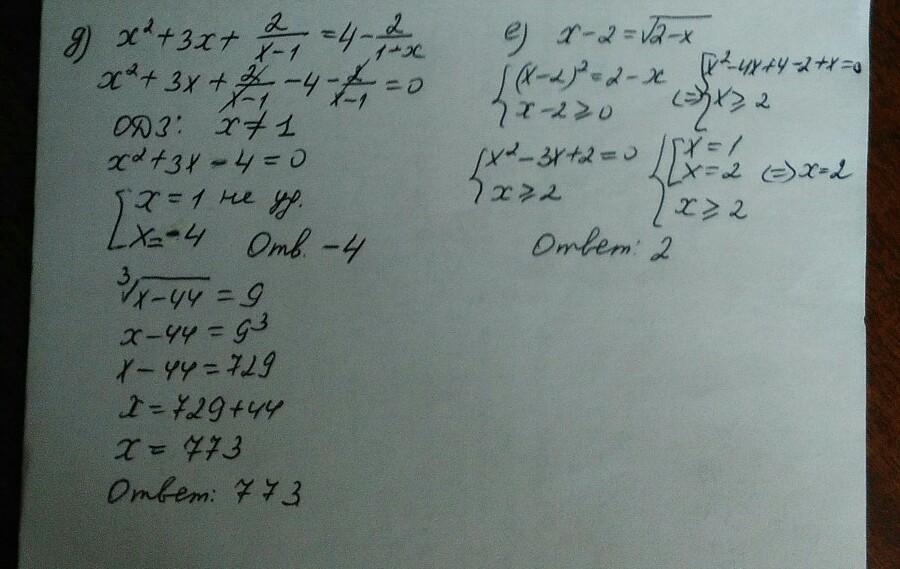 д) x² + 3x + 2/(x-1) = 4 - 2/(1-x)
x² + 3x + 2/(x-1) - 4 - 2/(x-1) = 0
ОДЗ: x ≠ 1
x² + 3x - 4 = 0
[ x = 1 не уд.
x = -4 Отв. -4
∛(x-44) = 9
x - 44 = 9³
x - 44 = 729
x = 729 + 44
x = 773
Ответ: 773
е) x - 2 = √(2-x)
{ (x-2)² = 2 - x
x - 2 ≥ 0
(=) { x² - 4x + 4 - 2 + x = 0
x ≥ 2
{ x² - 3x + 2 = 0
x ≥ 2
{ [ x = 1
x = 2 (=) x = 2
x ≥ 2
Ответ: 2